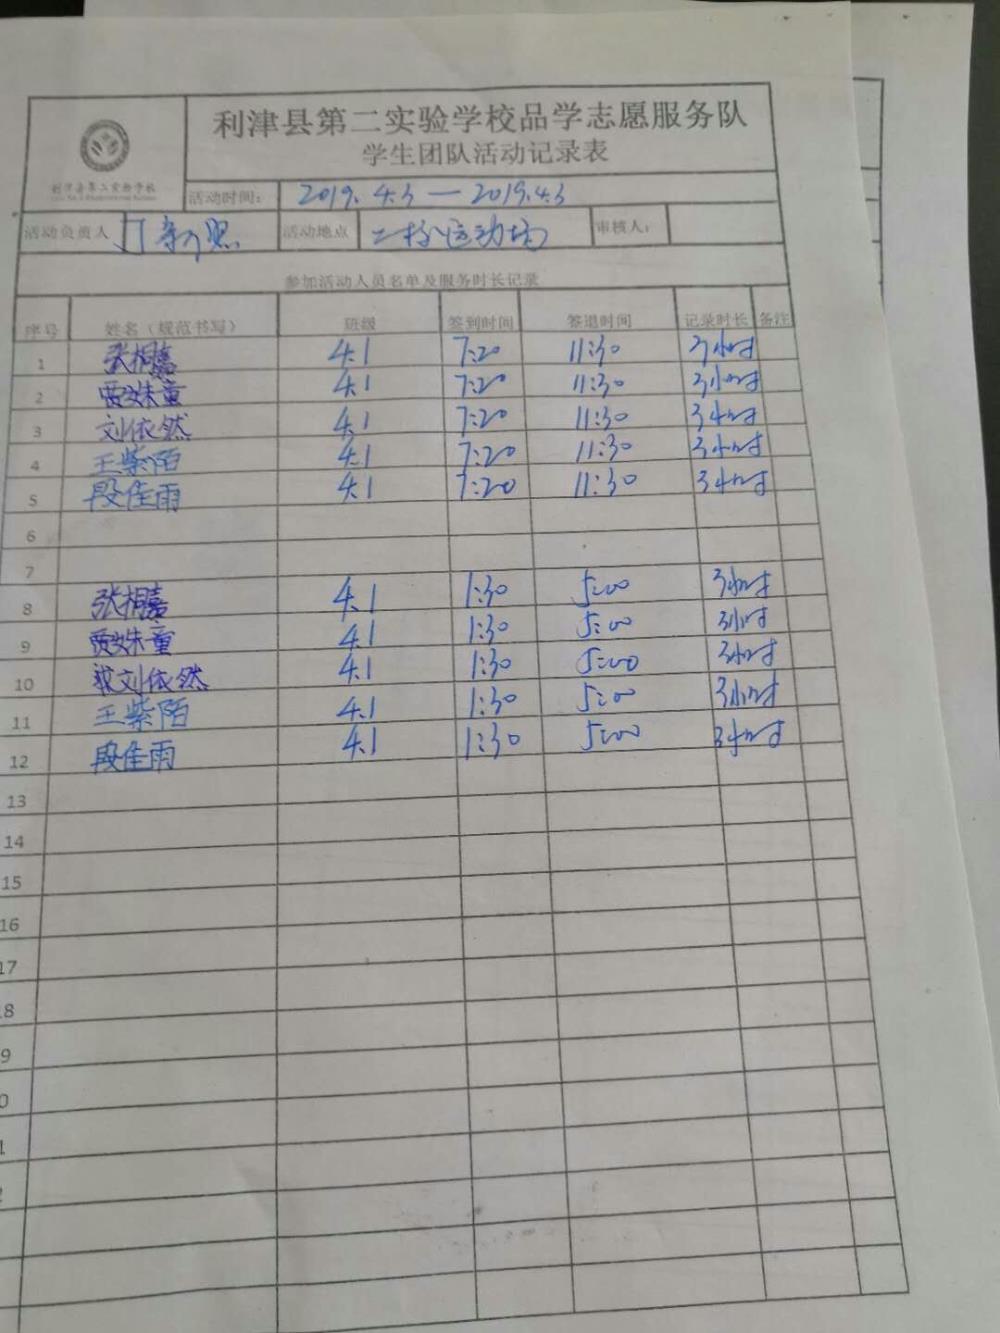 利津县第二实验学校品学志愿服务队
学生团队活动记录表
利津县第二实验学校
活动时间: 2019.4.3—2019.4.3
活动负责人 活动地点 二校运动场 审核人:
参加活动人员名单及服务时长记录
序号 姓名(规范书写) 班级 签到时间 签退时间 记录时长 备注
1 张桐嘉 4.1 7:20 11:30 3小时
2 贾姝童 4.1 7:20 11:30 3小时
3 刘依然 4.1 7:20 11:30 3小时
4 王紫陌 4.1 7:20 11:30 3小时
5 段佳雨 4.1 7:20 11:30 3小时
6
7
8 张桐嘉 4.1 1:30 5:00 3小时
9 贾姝童 4.1 1:30 5:00 3小时
10 刘依然 4.1 1:30 5:00 3小时
11 王紫陌 4.1 1:30 5:00 3小时
12 段佳雨 4.1 1:30 5:00 3小时
13
14
15
16
17
8
9
0
1
2